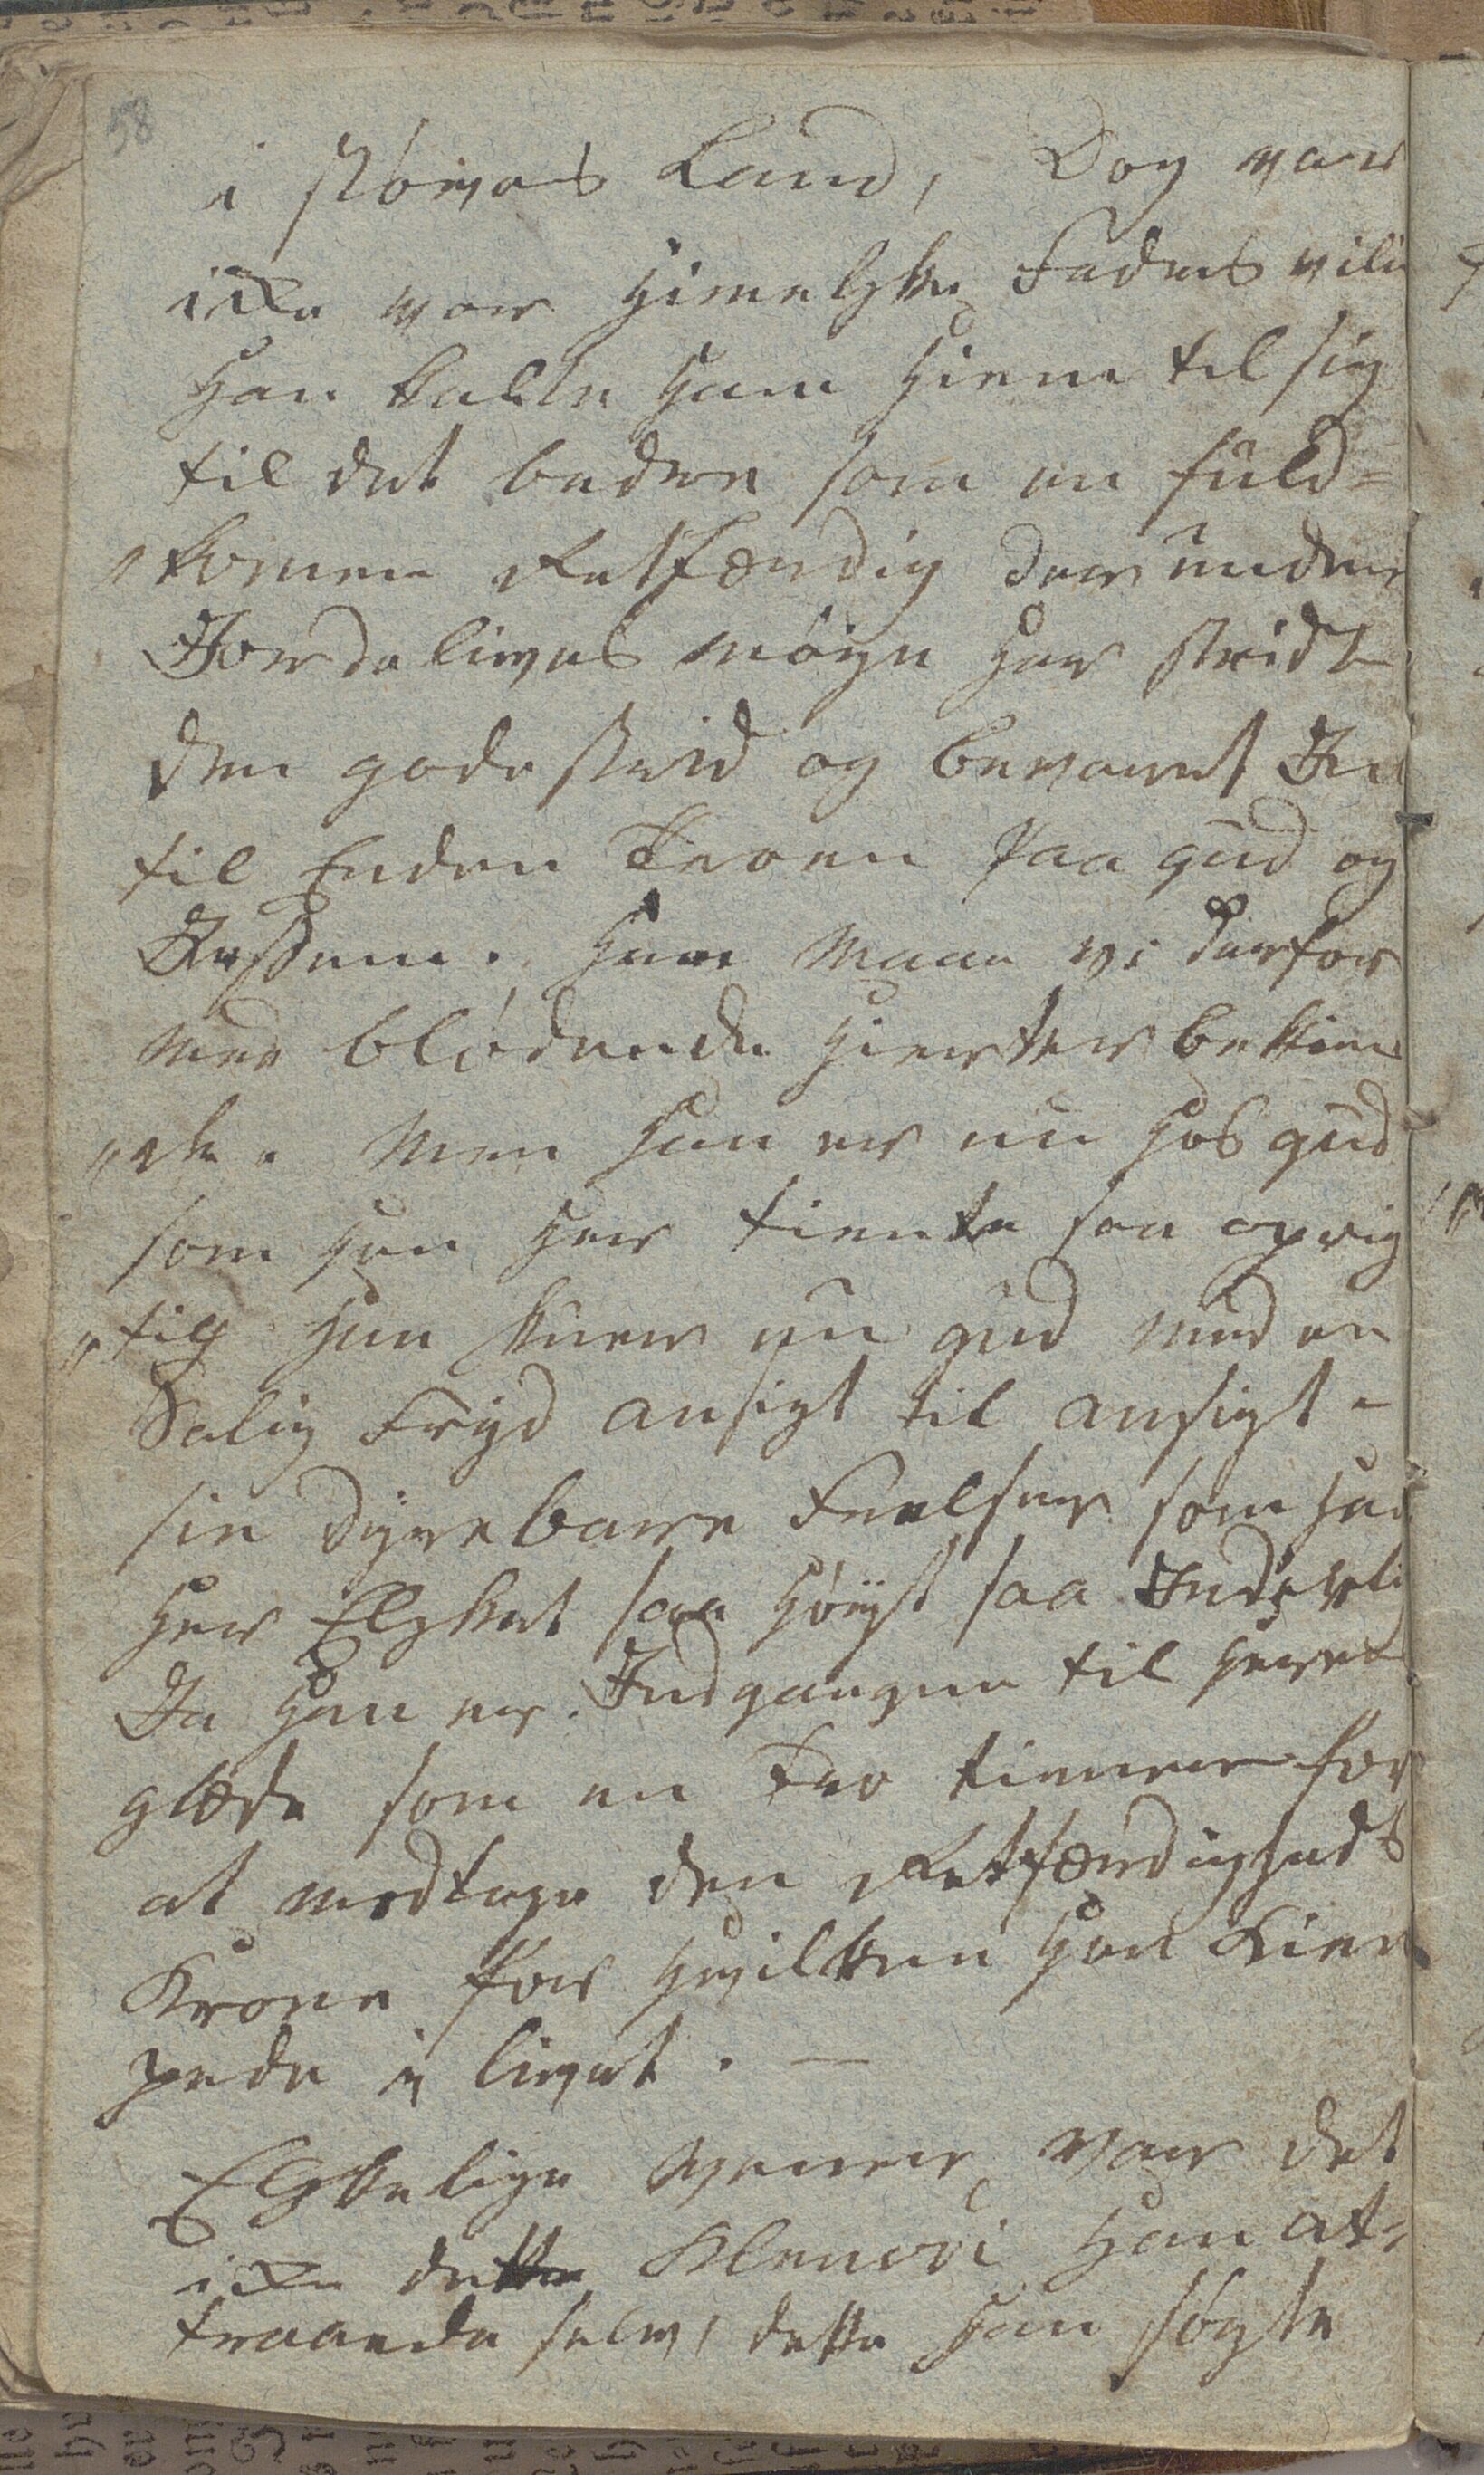 58
i støvets Land, Dog var
icke vor Himelske Faders vilie
Han kalte Ham Hiem til sig
til det bedre som en fuld=
komen Retfærdig der under
Jordelivets møye Har stridt
den gode strid og bevaret In
til Enden Troen paa gud og
Jessum. Ham Maae vi derfor
med blødende Hierter bekien
de. Men Han er nu Hos gud
som Han Her tiente saa oprig
tig Han skuer nu gud med en
Salig Fryd ansigt til ansigt -
sin dyrebare Frelser som Han
Her Elsket saa Høyt saa Inderli
Ja Han er Indgangen til Heren
glæde som en Tro tienere for
at modtage den Retfærdigheds
Krone for Hvilken Han Kiem
pede i livet. —
Elskelige Venner var det
icke dette Klenodi Han at=
traaede selv, dette Han søgte